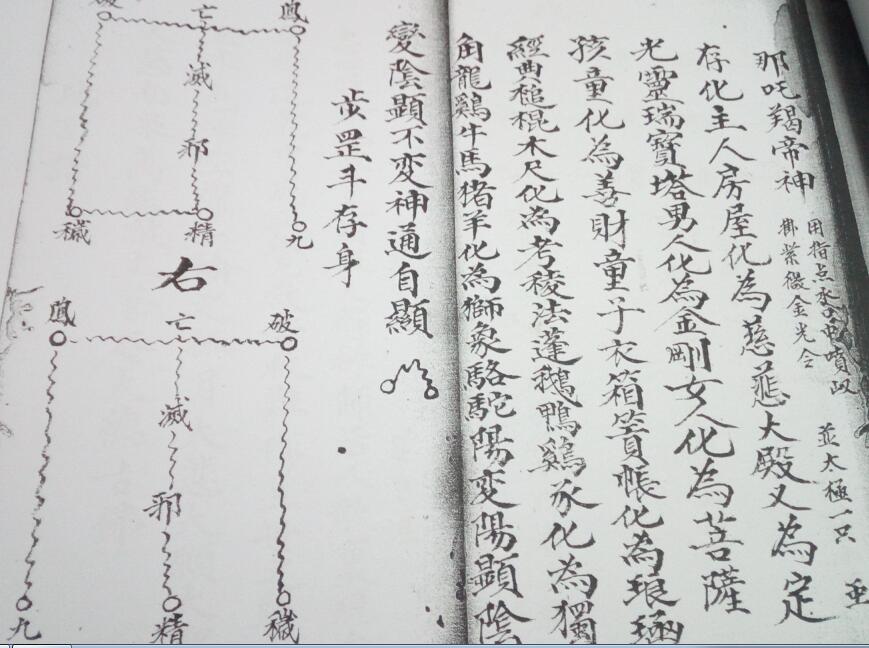 那吒羯帝神
用指点水
御紫微金光令
並太極一只
存化主人房屋化為慈悲大殿又為定
光靈瑞寶塔男人化為金剛女人化為菩薩
孩童化為善財童子衣箱篢帳化為琅
經典槌棍木尺化為考稜法蓬鵝鴨鷄豕化為獨
角龍鷄牛馬猪羊化為獅象駱駝陽変陽顯陰
變陰顯不変神通自顯
步罡斗存身
破 亡 鳳
滅
邪
穢 精 九
右
鳳 亡 破
滅
邪
九 精 穢